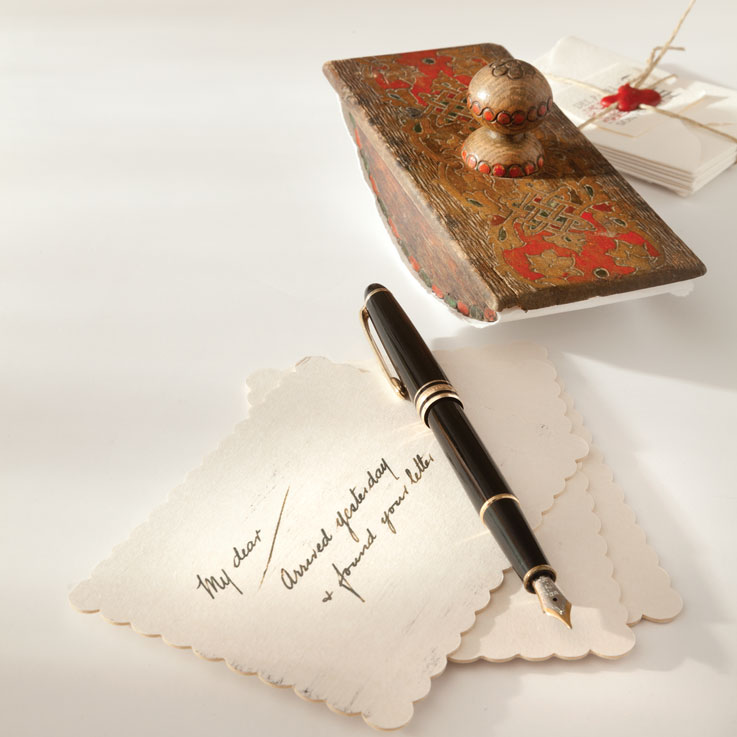 My dear /
Arrived yesterday
+ found your letter